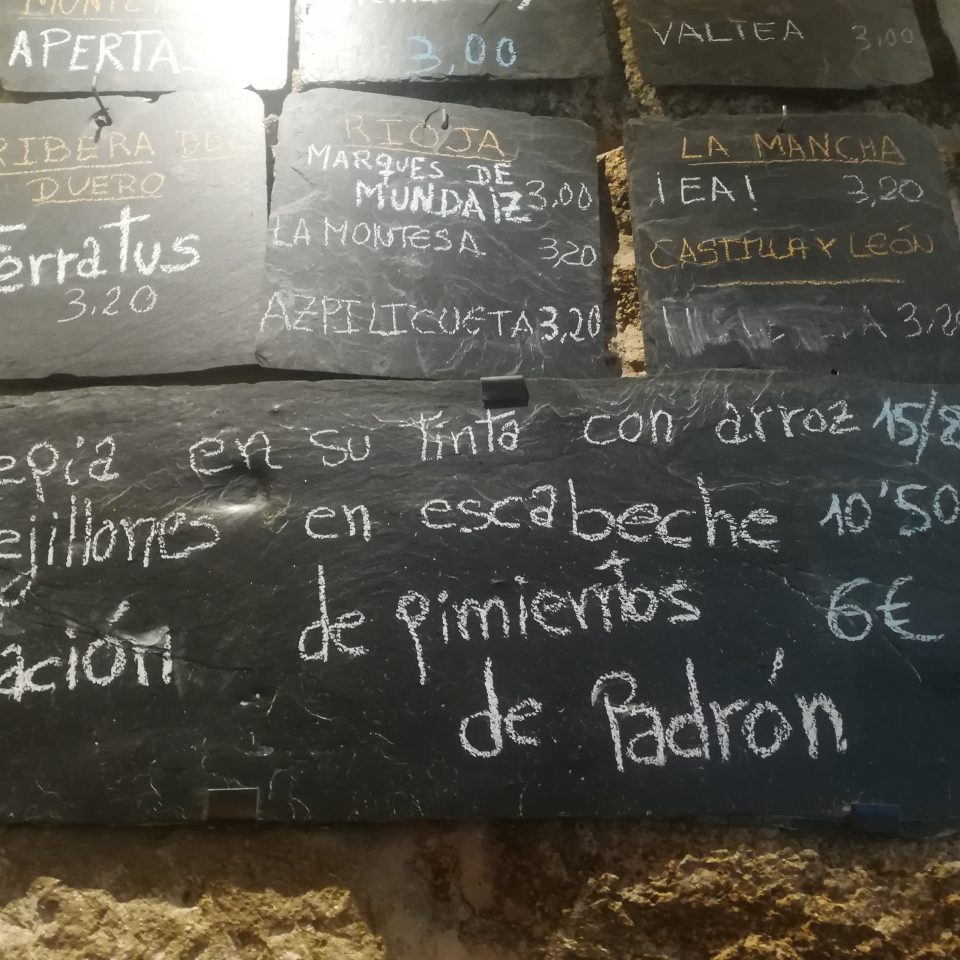 APERTAS
3,00
VALTEA 3,00
RIBERA DEL
DUERO
Terratus
3,20
RIOJA
MARQUES DE
MUNDAIZ 3,00
LA MONTESA 3,20
AZPILICUETA 3,20
LA MANCHA
¡EA! 3,20
CASTILLA Y LEÓN
3,20
epia en su tinta con arroz 15/8
ejillones en escabeche 10'50
ación de pimientos 6€
de Padrón